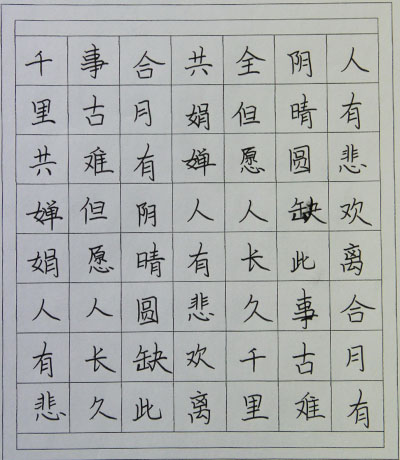 人有悲欢离合月有
阴晴圆缺此事古难
全但愿人长久千里
共娟婵人有悲欢离
合月有阴晴圆缺此
事古难但愿人长久
千里共婵娟人有悲